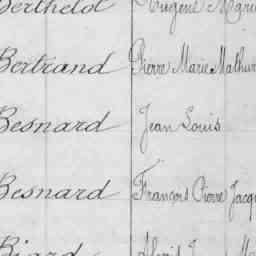 Berthelot Eugène Marie
Bertrand Pierre Marie Mathur
Besnard Jean Louis
Besnard François Pierre Jacq
Biard